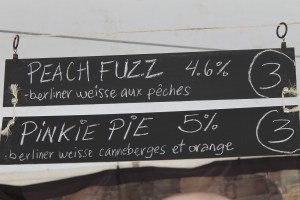 PEACH FUZZ 4.6% 3
-berliner weisse aux pêches
PINKIE PIE 5% 3
berliner weisse canneberges et orange